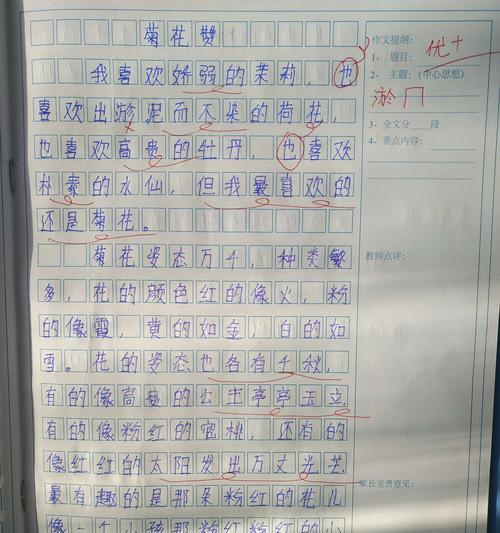 菊花赞
我喜欢娇强的茉莉，也
喜欢出泥而不染的荷花，
也喜欢高贵的牡丹，也喜欢
朴素的水仙，但我最喜欢的
还是菊花。
菊花姿态万千，种类繁
多，花的颜色红的像火，粉
的像霞，黄的如金，白的如
雪。花的姿态也各有千秋，
有的像高的公主亭亭玉立，
有的像粉红的蜜桃，还有的
像红红的太阳发出万丈光芒。
最有趣的是那朵粉红的花儿
像一个小孩那粉红的小
作文提纲：
优+
1、题目：
2、主题：(中心思想)
淤
3、全文分 段
4、重点内容：
教师点评：
家长宝贵意见：